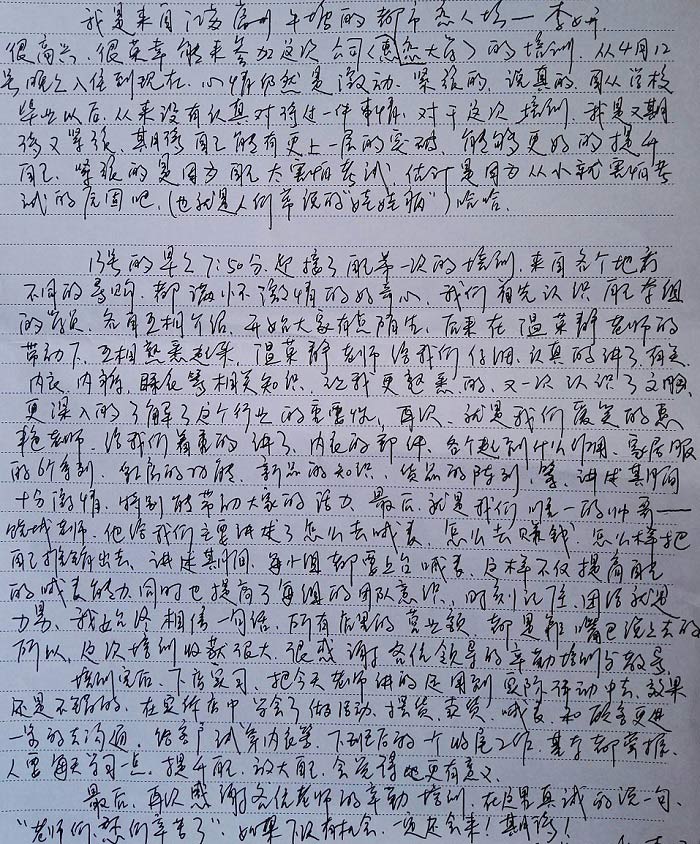 我是来自江苏 的都市恋人场一李
很高兴、很荣幸能来参加这次公司《 恋大 》的培训、从4月12
号晚上入住到现在、心情仍然是激动、紧张的、说真的、自从学校
毕业以后、从来没有认真对待过一件事情、对于这次培训、我是又期
待又紧张、期待自己能有更上一层的突破、能够更好的提升
自己、紧张的是因为自己太害怕考试、估计是因为从小就害怕考
试的原因吧、(也就是人们常说的"娃娃病")哈哈、
13号的早上7:50分、迎接了自己第一次的培训、来自各个地方
不同的导购、都 激情的好奇心、我们首先认识自己本组
的 、各自互相介绍、开始大家有点陌生、后来在温英静老师的
带动下、互相熟悉起来、温英静老师给我们仔细、认真的讲了
内衣、内裤、睡衣等相关知识、让我更熟悉的、又一次认识了文胸、
更深入的了解了这个行业的重要性、再次、就是我们爱笑的
艳老师、给我们着重的讲了、内衣的部件、各个起到什么作用、家居服
的6个系列、 的功能、新品的知识、货品的陈列、等、讲述期间
十分激情、特别能带动大家的活力、最后、就是我们唯一的帅哥——
晓城老师、他给我们主要讲述了怎么去喊麦、怎么去赚钱、怎么样把
自己推销出去、讲述期间、每小组都要上台喊麦、这样不仅提高自己
的喊麦能力、同时也提高了每组的团队意识、时刻记住、团结就是
力量、我始终相信一句话、所有店里的营业额、都是靠嘴巴说上去的
所以、这次培训收获很大、很感谢各位领导的辛勤培训与教导、
培训完后、下店实习、把今天老师讲的运用到实际行动中去、效果
还是不错的、在实习店中学会了做活动、摆货、卖货、喊麦和顾客更进
一步的去沟通、给客户试穿内衣等、下到店后的一个收尾工作、基本都掌握、
人要每天学习一点、提升自己、放大自己、会觉得 更有意义、
最后、再次感谢各位老师的辛勤培训、在这里真诚的说一句、
"老师们、您们辛苦了"、如果下次有机会、一定还会来!期待!